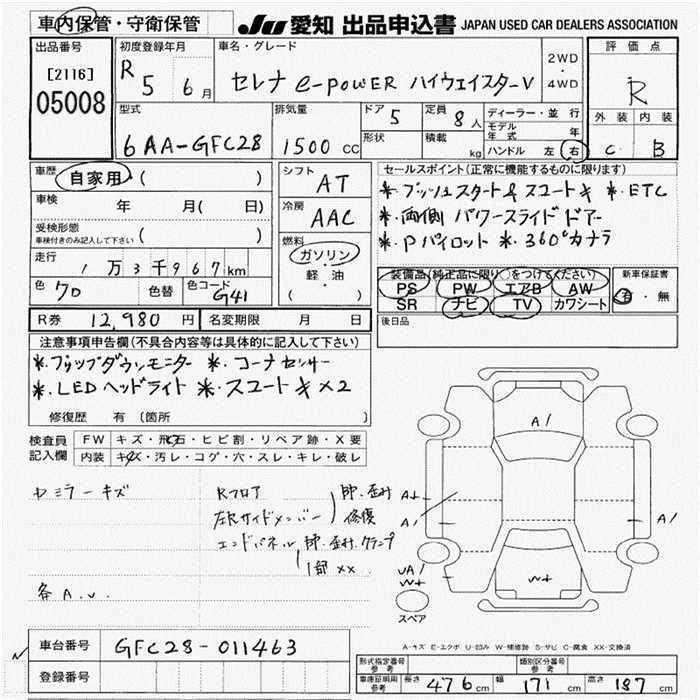 車内保管・守衛保管 JU 愛知 出品申込書 JAPAN USED CAR DEALERS ASSOCIATION
出品番号 [2116] 05008
初度登録年月 R 5 6月
車名・グレード セレナ e-POWER ハイウェイスターV
2WD・4WD
評価点 R
外装 内装
C B
型式 6AA-GFC28
排気量 1500cc
ドア 5 定員 8人
形状 積載 kg
ディーラー・並行
モデル年式 年
ハンドル 左 右
車歴 自家用 ( )
車検 年 月( 日)
受検形態 車検付きのみ記入して下さい ( )
走行 1万3千967km
色 クロ 色替 色コード G41
シフト AT
冷房 AAC
燃料 ガソリン・軽・油 ( )
セールスポイント(正常に機能するものに限ります)
*プッシュスタート& スマートキー *ETC
*両側パワースライドドアー
*Pパイロット *360°カメラ
装備品(純正品に限り○をつけてください)
PS PW エアB AW
SR ナビ TV カワシート
新車保証書 有・無
後日品
R券 12,980円 名変期限 月 日
注意事項申告欄(不具合内容等は具体的に記入して下さい)
*フリップダウンモニター *コーナーセンサー
*LEDヘッドライト *スマートキー×2
修復歴 有(箇所 )
検査員記入欄
FW キズ・飛石・ヒビ割・リペア跡・X要
内装 キズ・汚レ・コゲ・穴・スレ・キレ・破レ
ミラーキズ
Rフロア
左Rサイドメンバー 凹・歪み 修復
エンドパネル 凹・歪み・クランプ
1部 xx
各 A.U.
A1
A1
A1
UA1
W+
W+
スペア
A-キズ E-エクボ U-凹み W-補修跡 S-サビ C-腐食 XX-交換済
車台番号 GFC28-011463
登録番号
形式指定番号 参考 類別区分番号 参考
車庫証明用 参考 長さ 476cm 幅 171cm 高さ 187cm